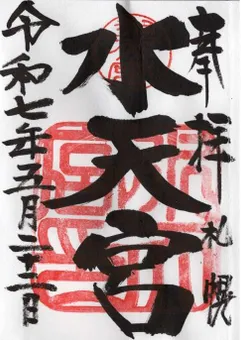 奉拝 札幌
水天宮
令和七年五月二十二日